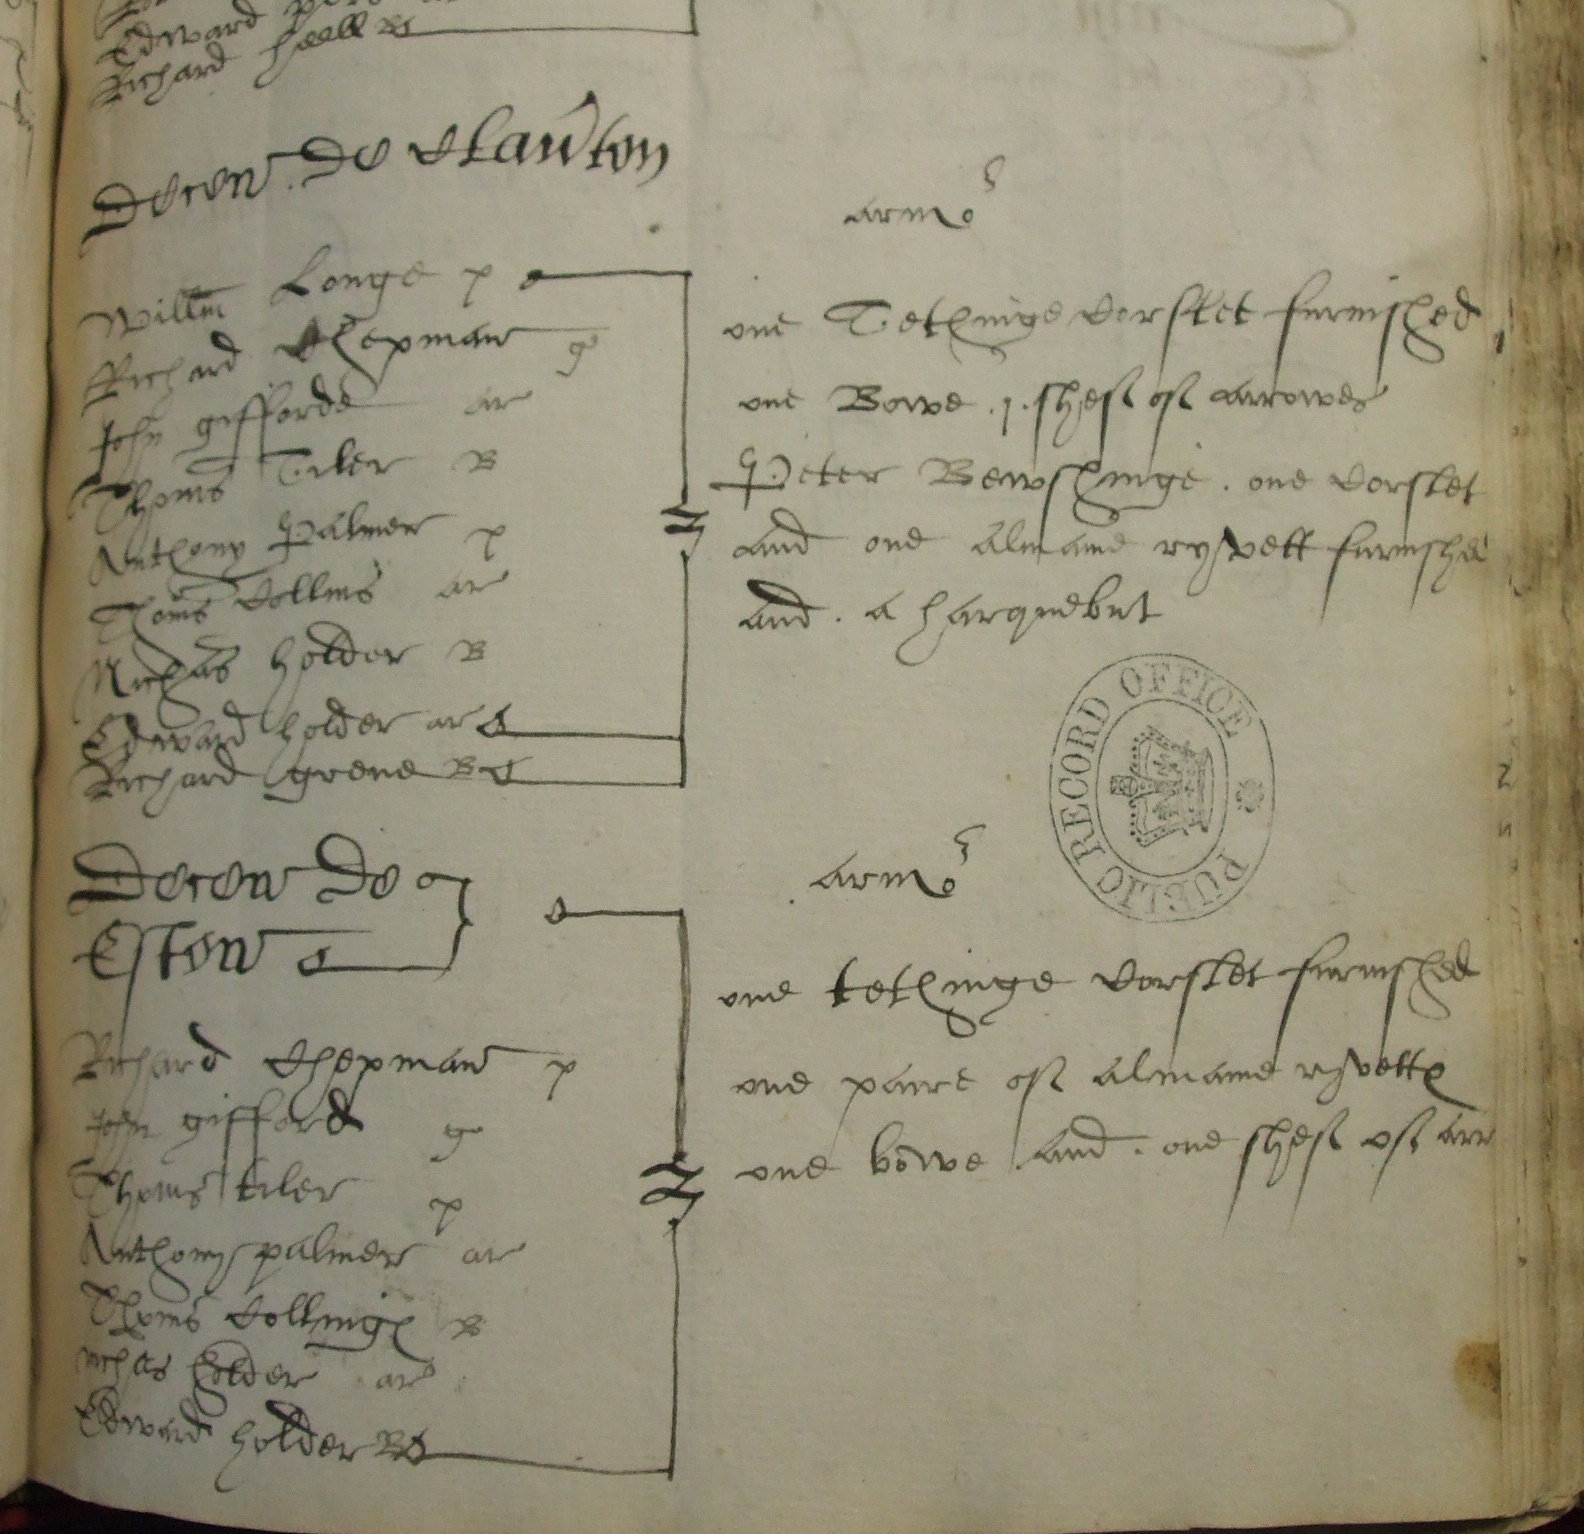 Edward
Richard Hall B
Decen de Clauton
armor
Willm Longe p
Richard Chepman g
John gifforde ar
Thoms Tiler B
Anthony Palmer p
Thoms Collins ar
Nichas holder B
Edward holder ar
Richard grene B
one Tethinge Corslet furnished
one Bowe .j. shef of arrowes
Peter Bewshinge . one Corslet
and one almaine ryvett furnished
and . a harquebut
PUBLIC RECORD OFFICE
Decen de
Eston
armor
Richard Chepman p
John gifford g
Thoms tiler p
Anthony palmer ar
Thoms Collinges B
nichas holder ar
Edward holder B
one tethinge Corslet furnished
one paire of almaine ryvettes
one bowe and . one shef of arr